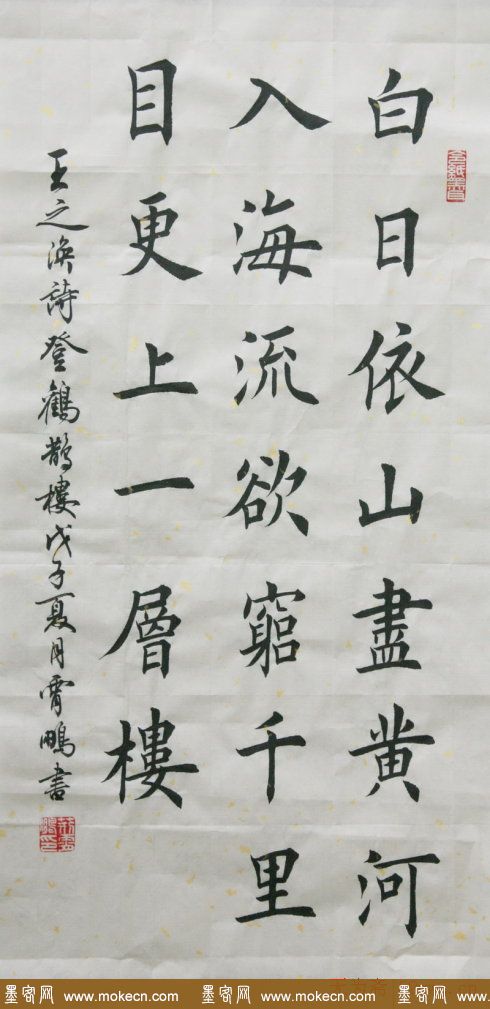 白日依山盡黄河
入海流欲窮千里
目更上一層樓
王之渙詩登鶴鵲樓戊子夏月霄鵬書
墨客网 www.mokecn.com 墨客网 www.mokecn.com 墨客网 www.mokecn.com